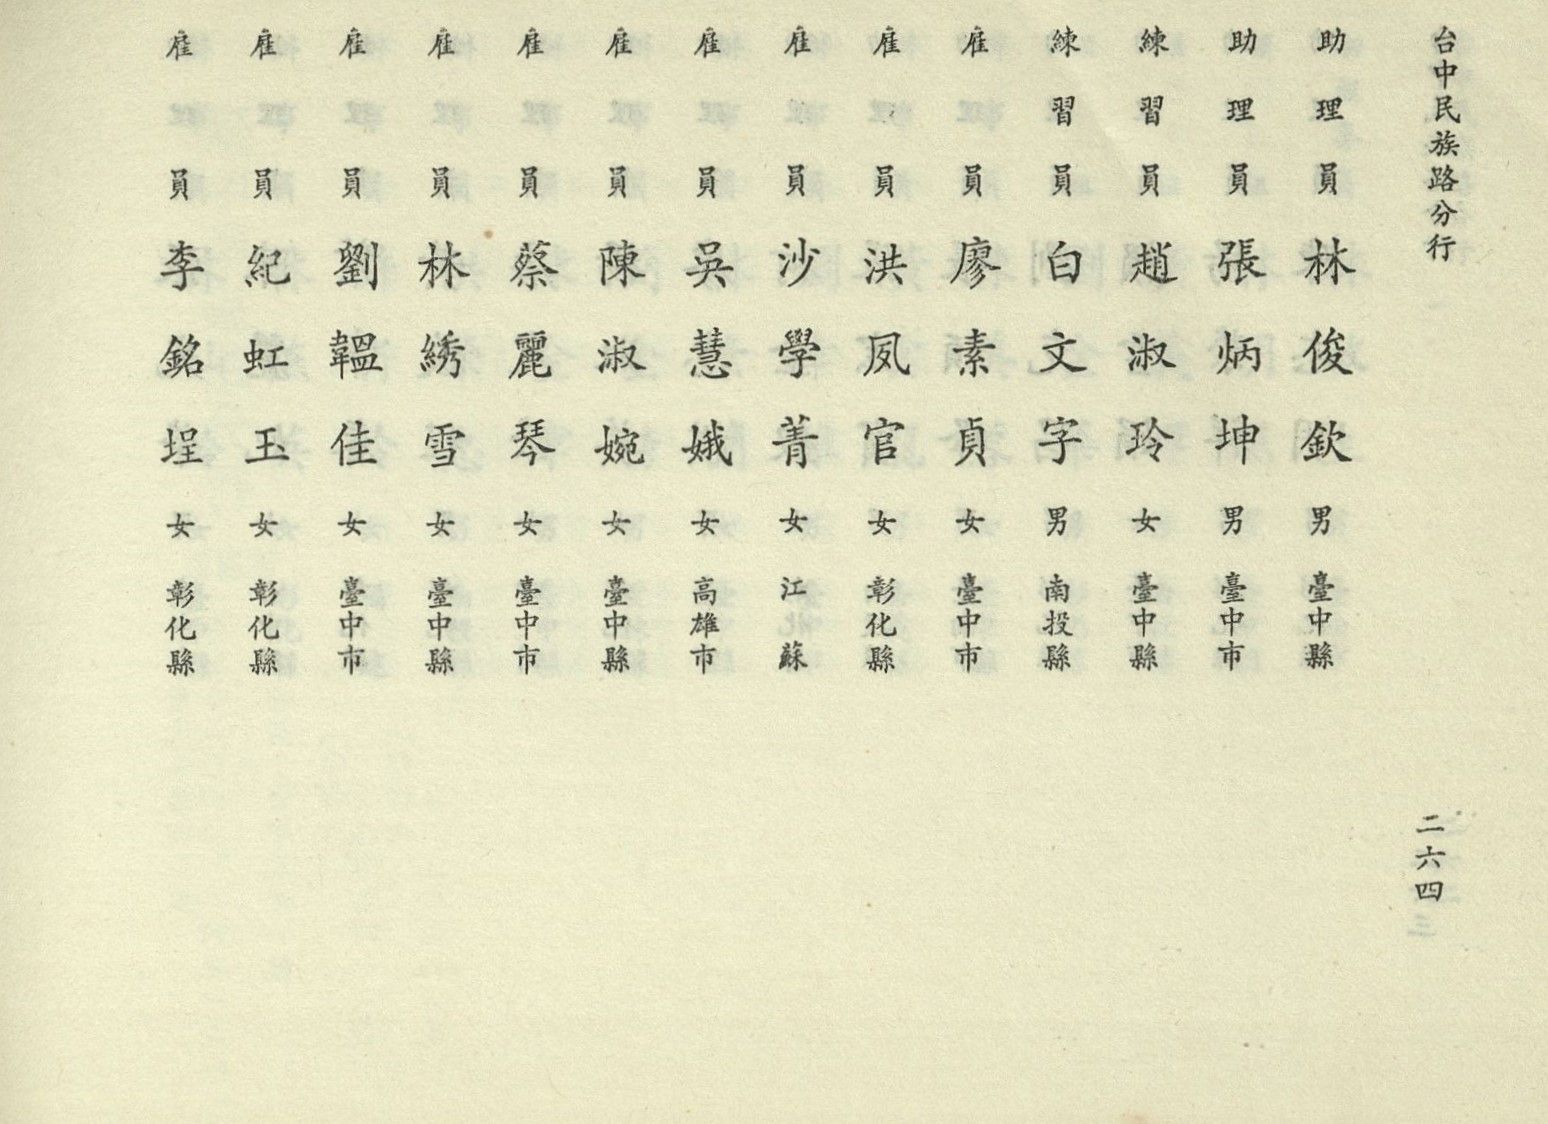 台中民族路分行
二六四
助理員林俊欽男臺中縣
助理員張炳坤男臺中市
練習員趙淑玲女臺中縣
練習員白文字男南投縣
雇員廖素貞女臺中市
雇員洪鳳官女彰化縣
雇員沙學菁女江蘇
雇員吳慧娥女高雄市
雇員陳淑婉女臺中縣
雇員蔡麗琴女臺中市
雇員林綉雪女臺中縣
雇員劉韞佳女臺中市
雇員紀虹玉女彰化縣
雇員李銘埕女彰化縣